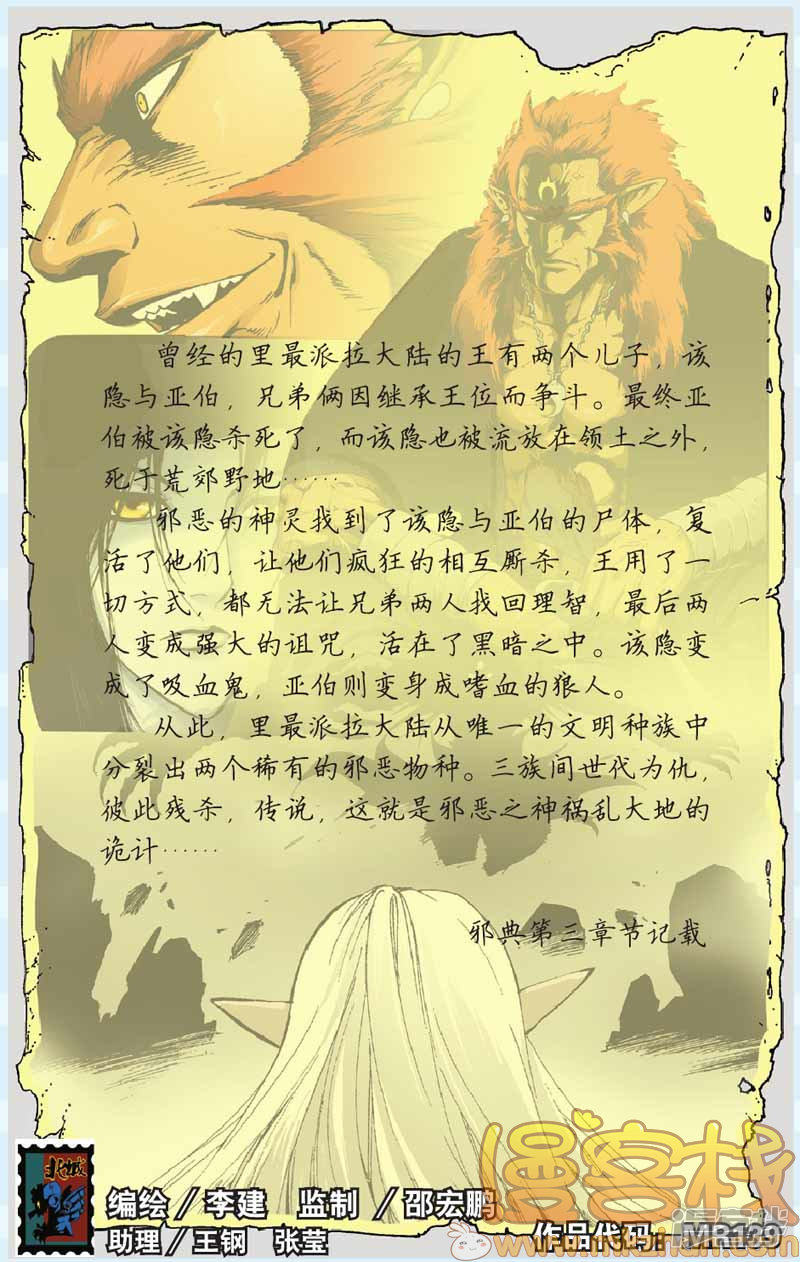 曾经的里最派拉大陆的王有两个儿子，该
隐与亚伯，兄弟俩因继承王位而争斗。最终亚
伯被该隐杀死了，而该隐也被流放在领土之外，
死于荒郊野地……
邪恶的神灵找到了该隐与亚伯的尸体，复
活了他们，让他们疯狂的相互厮杀，王用了一
切方式，都无法让兄弟两人找回理智，最后两
人变成强大的诅咒，活在了黑暗之中。该隐变
成了吸血鬼，亚伯则变身成嗜血的狼人。
从此，里最派拉大陆从唯一的文明种族中
分裂出两个稀有的邪恶物种。三族间世代为仇，
彼此残杀，传说，这就是邪恶之神祸乱大地的
诡计……
邪典第三章节记载
北城
编绘／李建　监制／邵宏鹏
助理／王钢　张莹
作品代码：MR139
漫客栈
www.mkzhan.com